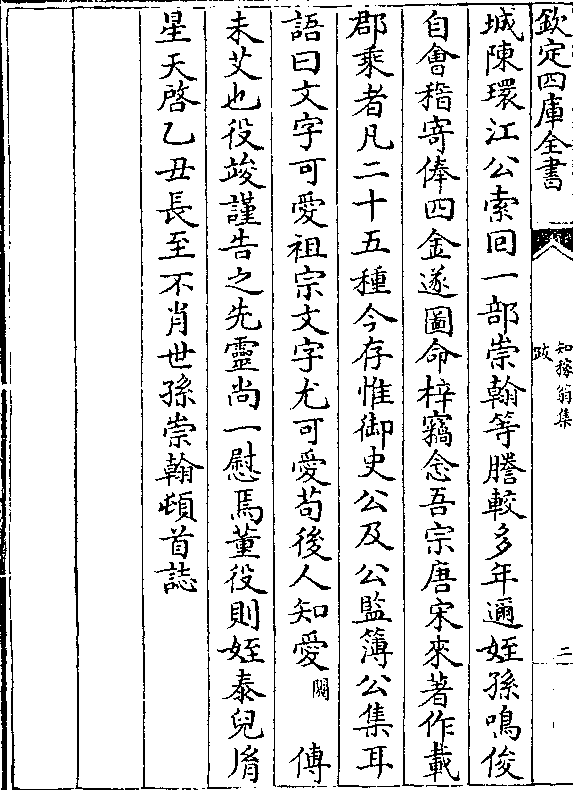 欽定四庫全書
知稼翁集
跋
二
城陳環江公索回一部崇翰等謄較多年邇姪孫鳴俊
自會稽寄俸四金遂圖命梓竊念吾宗唐宋來著作載
郡乘者凡二十五種今存惟御史公及公監簿公集耳
語曰文字可愛祖宗文字尤可愛苟後人知愛闕傳
未艾也役竣謹告之先靈尚一慰焉董役則姪泰兒㞕
星天啓乙丑長至不肖世孫崇翰頓首誌